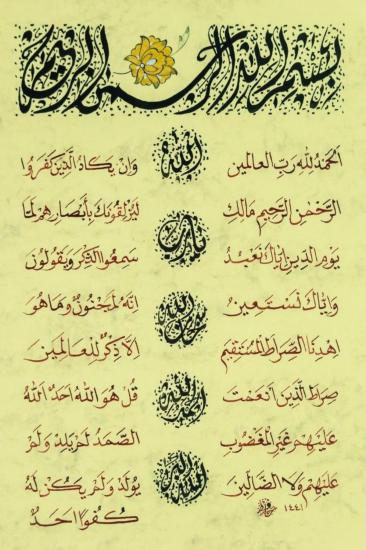 بسم الله الرحمن الرحيم
الحمد لله رب العالمين
الرحمن الرحيم مالك
يوم الدين اياك نعبد
واياك نستعين
اهدنا الصراط المستقيم
صراط الذين انعمت
عليهم غير المغضوب
عليهم ولا الضالين
١٤٤١
الله
يارب
سبحان الله
الحمد لله
الله اكبر
وان يكاد الذين كفروا
ليزلقونك بأبصارهم لما
سمعوا الذكر ويقولون
انه لمجنون وما هو
الا ذكر للعالمين
قل هو الله احد الله
الصمد لم يلد ولم
يولد ولم يكن له
كفوا احد